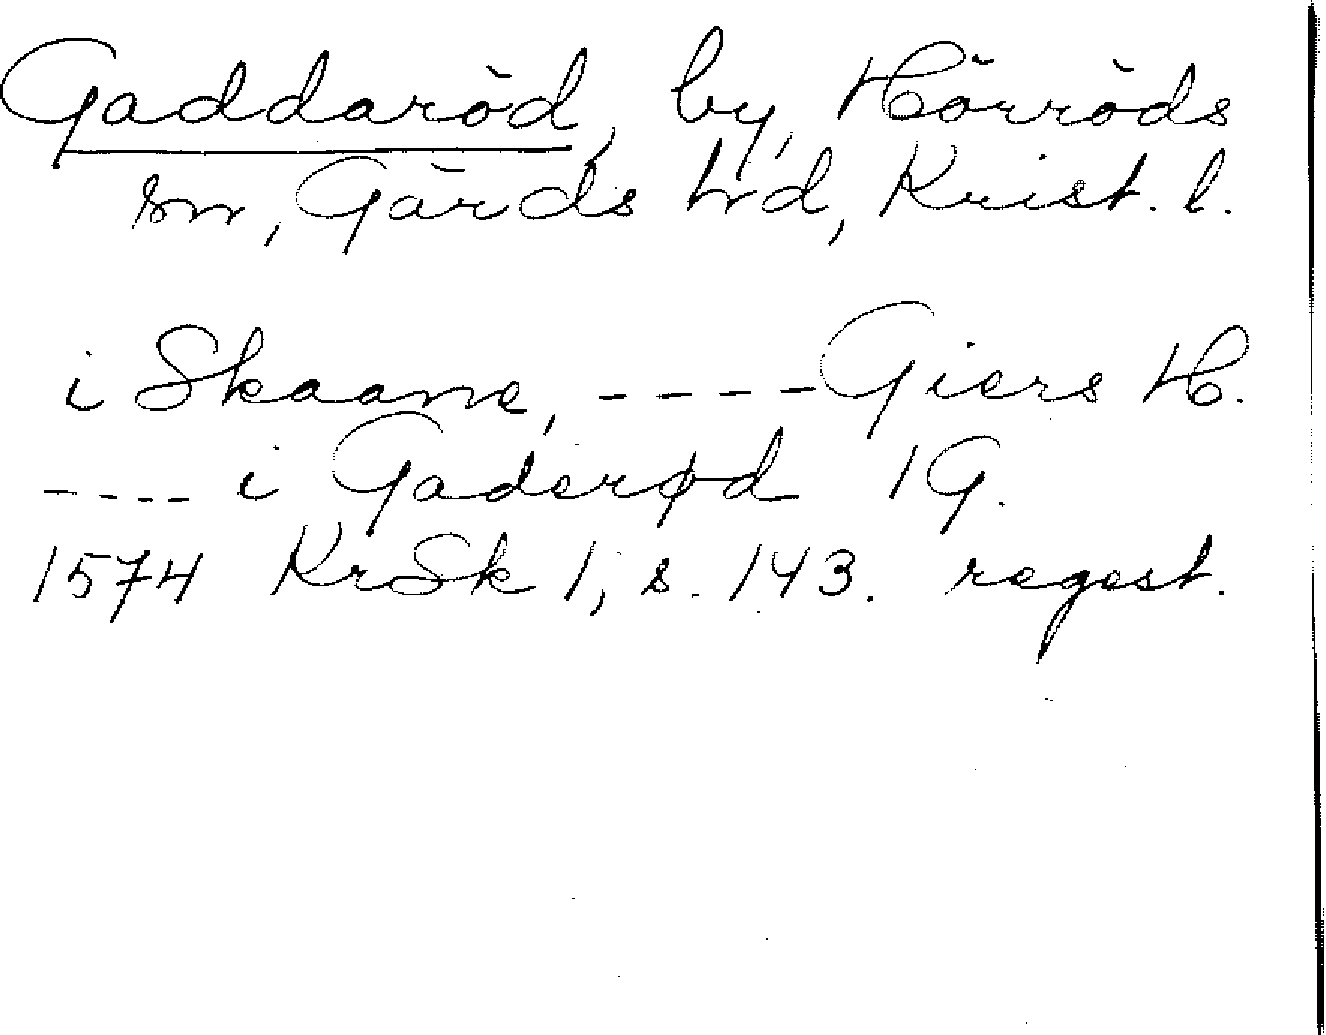 Gaddaröd, by, Hörröds
sn, Gärds hd, Krist. l.
i Skaane, ---- Giers H.
---- i Gaderød 1 G.
1574 KrSk 1, s. 143. regest.